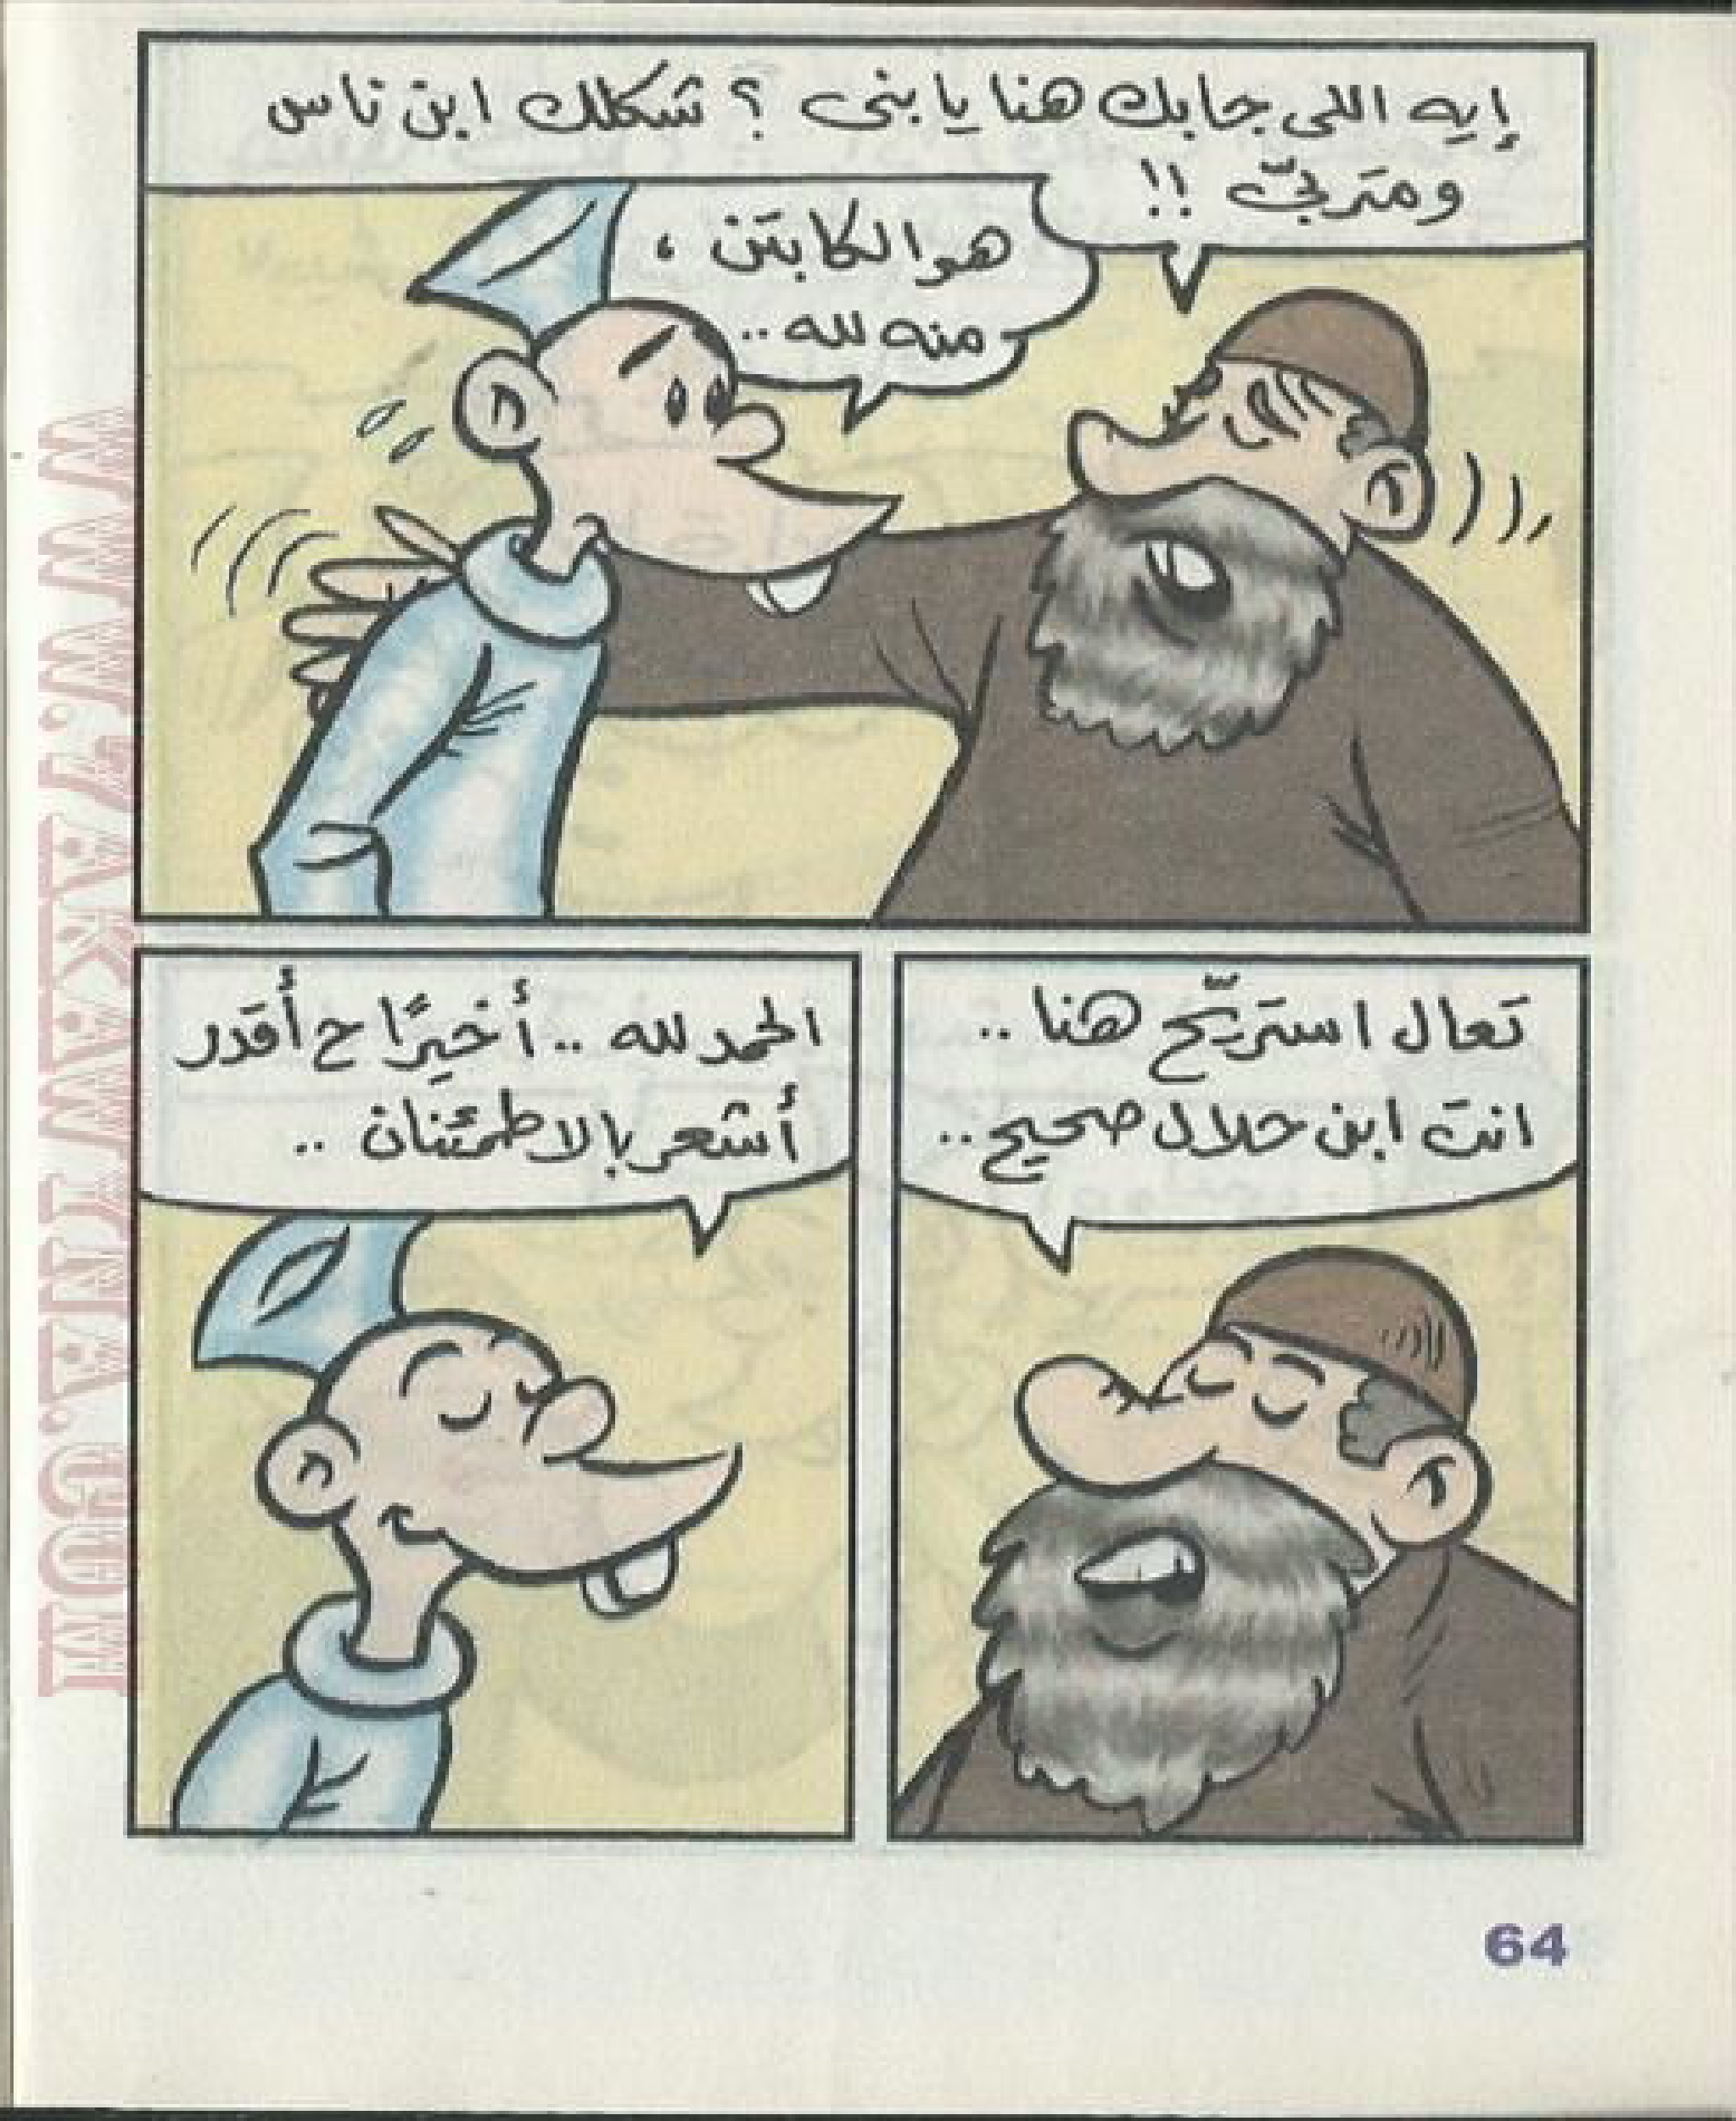 إيه اللى جابك هنا يا بنى ؟ شكلك ابن ناس
ومتربىّ !!
هو الكابتن ،
منه لله ..
تعال استريّح هنا ..
انت ابن حلال صحيح ..
الحمد لله .. أخيرًا ح أقدر
أشعر بالاطمئنان ..
64